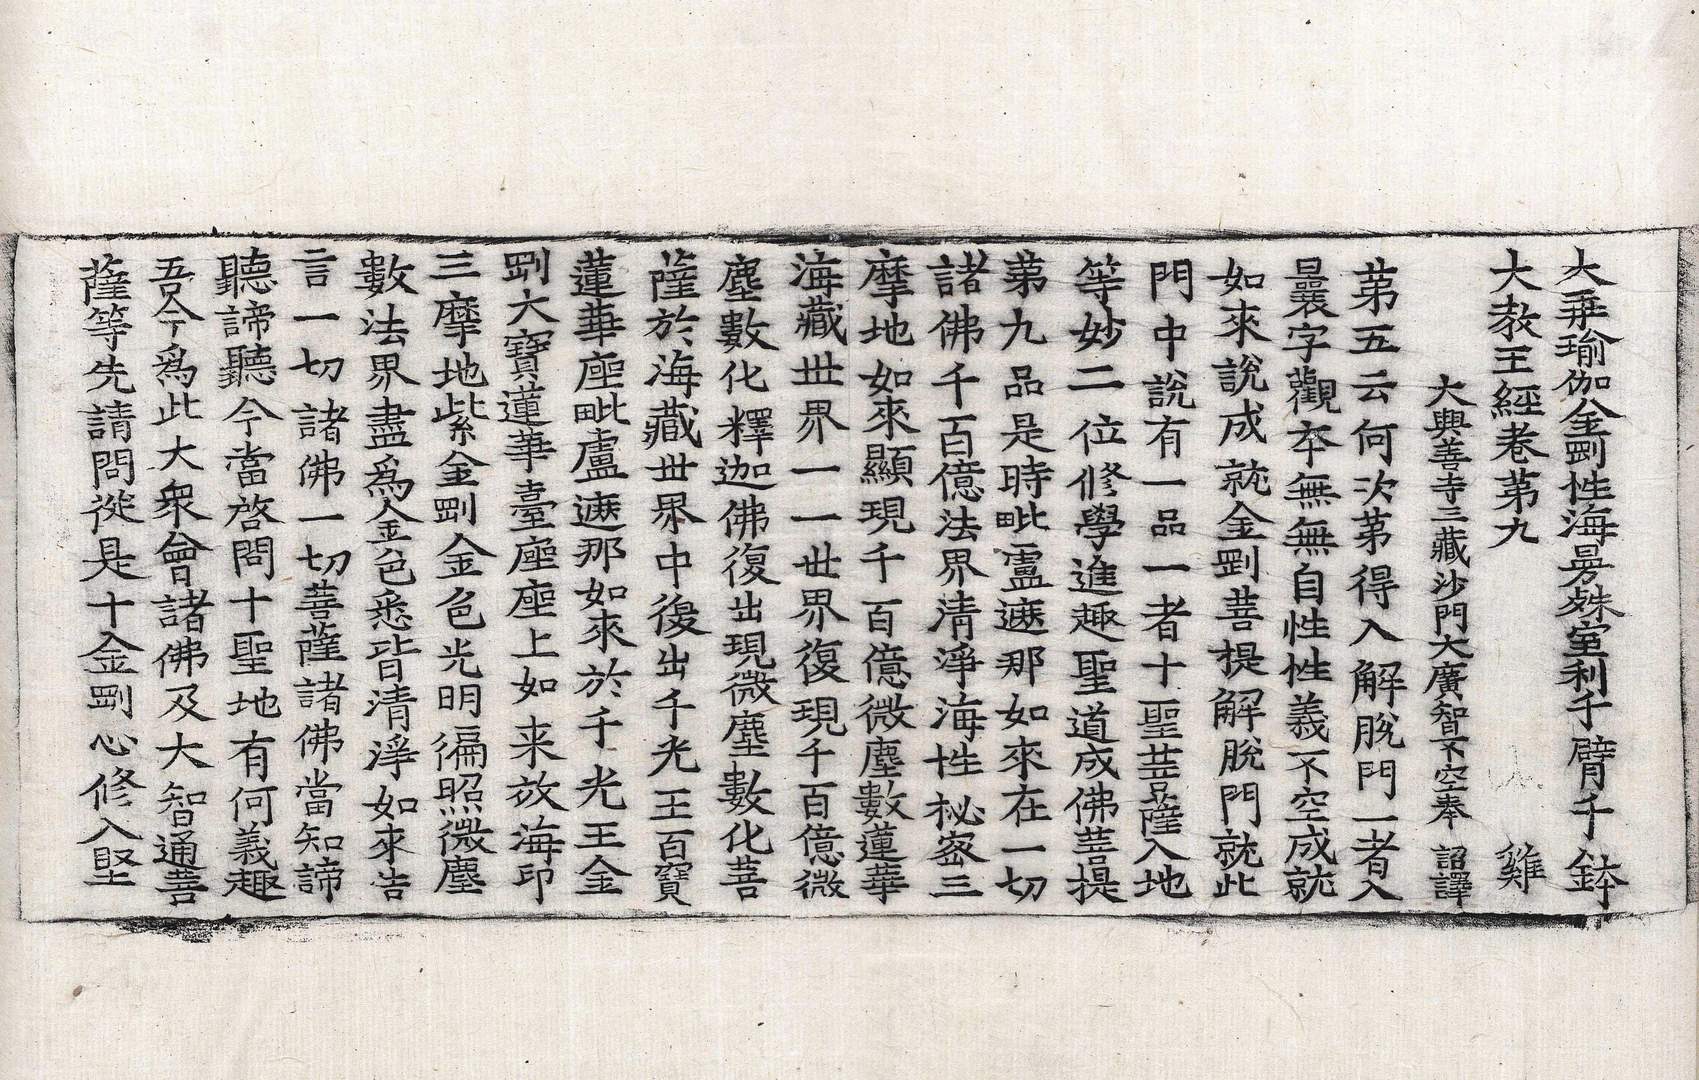 大乗瑜伽金剛性海曼殊室利千臂千鉢
大教王經卷第九　雞
大興善寺三藏沙門大廣智不空奉　詔譯
第五云何次第得入解脫門一者入
曩字觀本無無自性性義不空成就
如來說成就金剛菩提解脫門就此
門中說有一品一者十聖菩薩入地
等妙二位修學進趣聖道成佛菩提
第九品是時毗盧遮那如來在一切
諸佛千百億法界清淨海性秘密三
摩地如來顯現千百億微塵數蓮華
海藏世界一一世界復現千百億微
塵數化釋迦佛復出現微塵數化菩
薩於海藏世界中復出千光王百寶
蓮華座毗盧遮那如來於千光王金
剛大寶蓮華臺座座上如来放海印
三摩地紫金剛金色光明徧照微塵
數法界盡爲金色悉皆清淨如來告
言一切諸佛一切菩薩諸佛當知諦
聽諦聽今當啓問十聖地有何義趣
吾今爲此大衆會諸佛及大智通菩
薩等先請問從是十金剛心修入堅